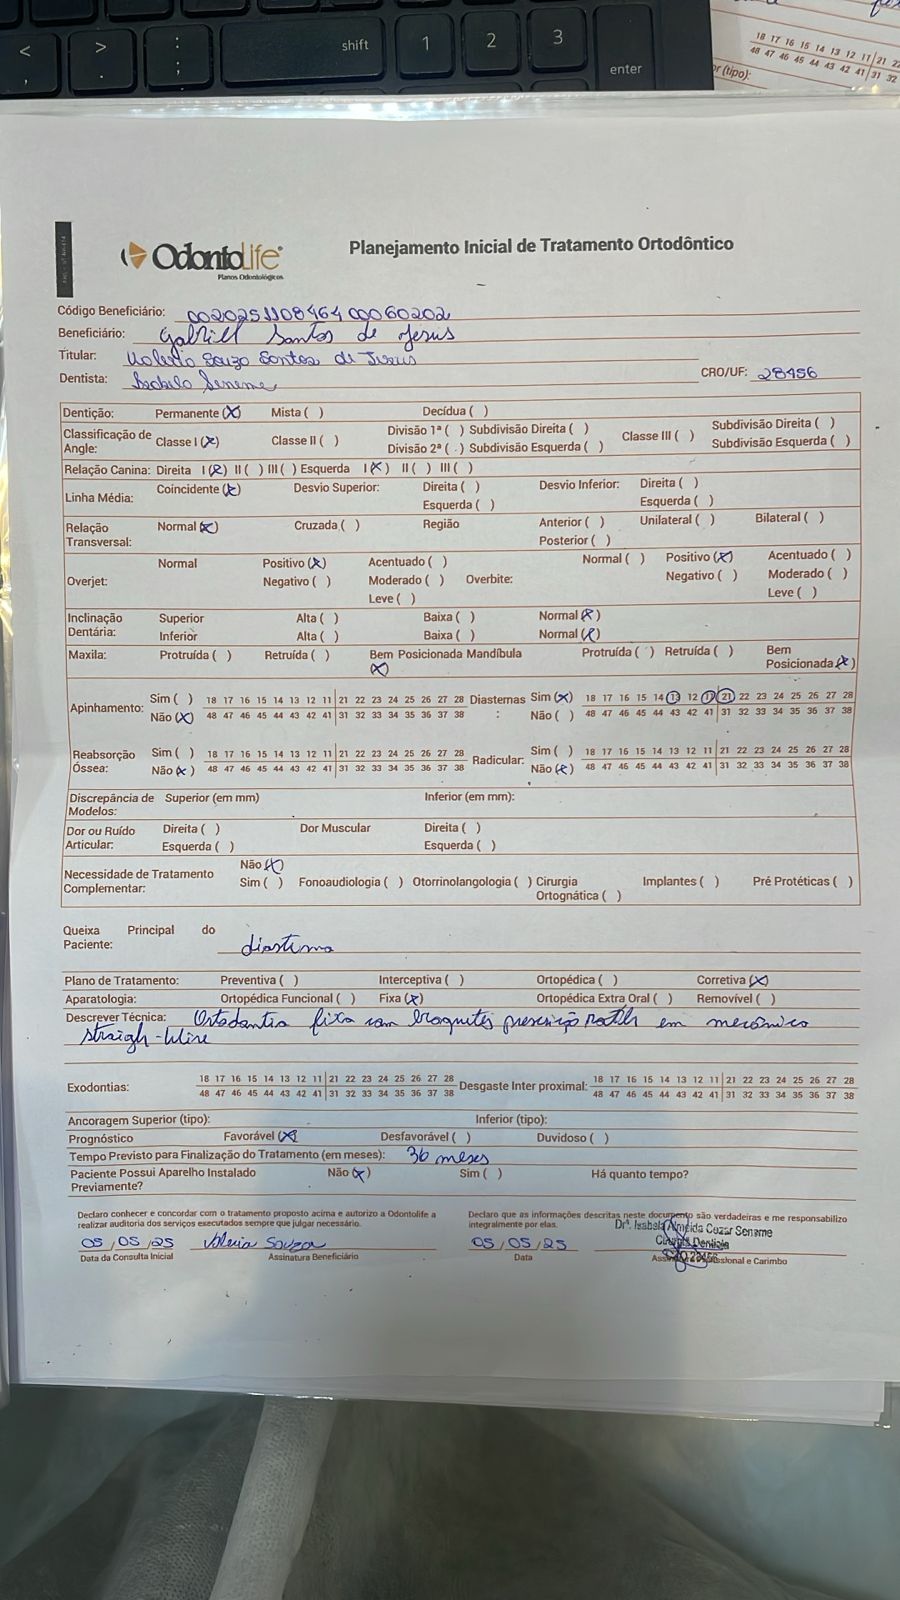 < > : shift 1 2 3
, . ; enter
18 17 16 15 14 13 12 11 21 22
48 47 46 45 44 43 42 41 31 32
(tipo):
OdontoLife
Planos Odontológicos
Planejamento Inicial de Tratamento Ortodôntico
Código Beneficiário: 00202511084640006 0202
Beneficiário: Gabriell Santos de Jesus
Titular: Valeria Souza Santos de Jesus
Dentista: Isabela Seneme CRO/UF: 28456
Dentição: Permanente (X) Mista ( ) Decídua ( )
Classificação de Angle: Classe I (X) Classe II ( ) Divisão 1ª ( ) Subdivisão Direita ( ) Classe III ( ) Subdivisão Direita ( )
Divisão 2ª ( ) Subdivisão Esquerda ( ) Subdivisão Esquerda ( )
Relação Canina: Direita I (X) II ( ) III ( ) Esquerda I (X) II ( ) III ( )
Linha Média: Coincidente (X) Desvio Superior: Direita ( ) Desvio Inferior: Direita ( )
Esquerda ( ) Esquerda ( )
Relação Transversal: Normal (X) Cruzada ( ) Região Anterior ( ) Unilateral ( ) Bilateral ( )
Posterior ( )
Overjet: Normal Positivo (X) Acentuado ( ) Overbite: Normal ( ) Positivo (X) Acentuado ( )
Negativo ( ) Moderado ( ) Negativo ( ) Moderado ( )
Leve ( ) Leve ( )
Inclinação Dentária: Superior Alta ( ) Baixa ( ) Normal (X)
Inferior Alta ( ) Baixa ( ) Normal (X)
Maxila: Protruída ( ) Retruída ( ) Bem Posicionada (X) Mandíbula Protruída ( ) Retruída ( ) Bem Posicionada (X)
Apinhamento: Sim ( ) 18 17 16 15 14 13 12 11 21 22 23 24 25 26 27 28 Diastemas: Sim (X) 18 17 16 15 14 13 12 11 21 22 23 24 25 26 27 28
Não (X) 48 47 46 45 44 43 42 41 31 32 33 34 35 36 37 38 Não ( ) 48 47 46 45 44 43 42 41 31 32 33 34 35 36 37 38
Reabsorção Óssea: Sim ( ) 18 17 16 15 14 13 12 11 21 22 23 24 25 26 27 28 Radicular: Sim ( ) 18 17 16 15 14 13 12 11 21 22 23 24 25 26 27 28
Não (X) 48 47 46 45 44 43 42 41 31 32 33 34 35 36 37 38 Não (X) 48 47 46 45 44 43 42 41 31 32 33 34 35 36 37 38
Discrepância de Modelos: Superior (em mm) Inferior (em mm):
Dor ou Ruído Articular: Direita ( ) Dor Muscular Direita ( )
Esquerda ( ) Esquerda ( )
Necessidade de Tratamento Complementar: Não (X)
Sim ( ) Fonoaudiologia ( ) Otorrinolangologia ( ) Cirurgia Ortognática ( ) Implantes ( ) Pré Protéticas ( )
Queixa Principal do Paciente: diastema
Plano de Tratamento: Preventiva ( ) Interceptiva ( ) Ortopédica ( ) Corretiva (X)
Aparatologia: Ortopédica Funcional ( ) Fixa (X) Ortopédica Extra Oral ( ) Removível ( )
Descrever Técnica: Ortodontia fixa com braquites prescrição Roth em mecânica
straigh-Wire
Exodontias: 18 17 16 15 14 13 12 11 21 22 23 24 25 26 27 28 Desgaste Inter proximal: 18 17 16 15 14 13 12 11 21 22 23 24 25 26 27 28
48 47 46 45 44 43 42 41 31 32 33 34 35 36 37 38 48 47 46 45 44 43 42 41 31 32 33 34 35 36 37 38
Ancoragem Superior (tipo): Inferior (tipo):
Prognóstico Favorável (X) Desfavorável ( ) Duvidoso ( )
Tempo Previsto para Finalização do Tratamento (em meses): 36 meses
Paciente Possui Aparelho Instalado Previamente? Não (X) Sim ( ) Há quanto tempo?
Declaro conhecer e concordar com o tratamento proposto acima e autorizo a Odontolife a Declaro que as informações descritas neste documento são verdadeiras e me responsabilizo
realizar auditoria dos serviços executados sempre que julgar necessário. integralmente por elas.
Drª. Isabela Almeida Cezar Seneme
Cirurgiã Dentista
CRO 28456
05/05/25 Valeria Souza 05/05/25
Data da Consulta Inicial Assinatura Beneficiário Data Assinatura Profissional e Carimbo